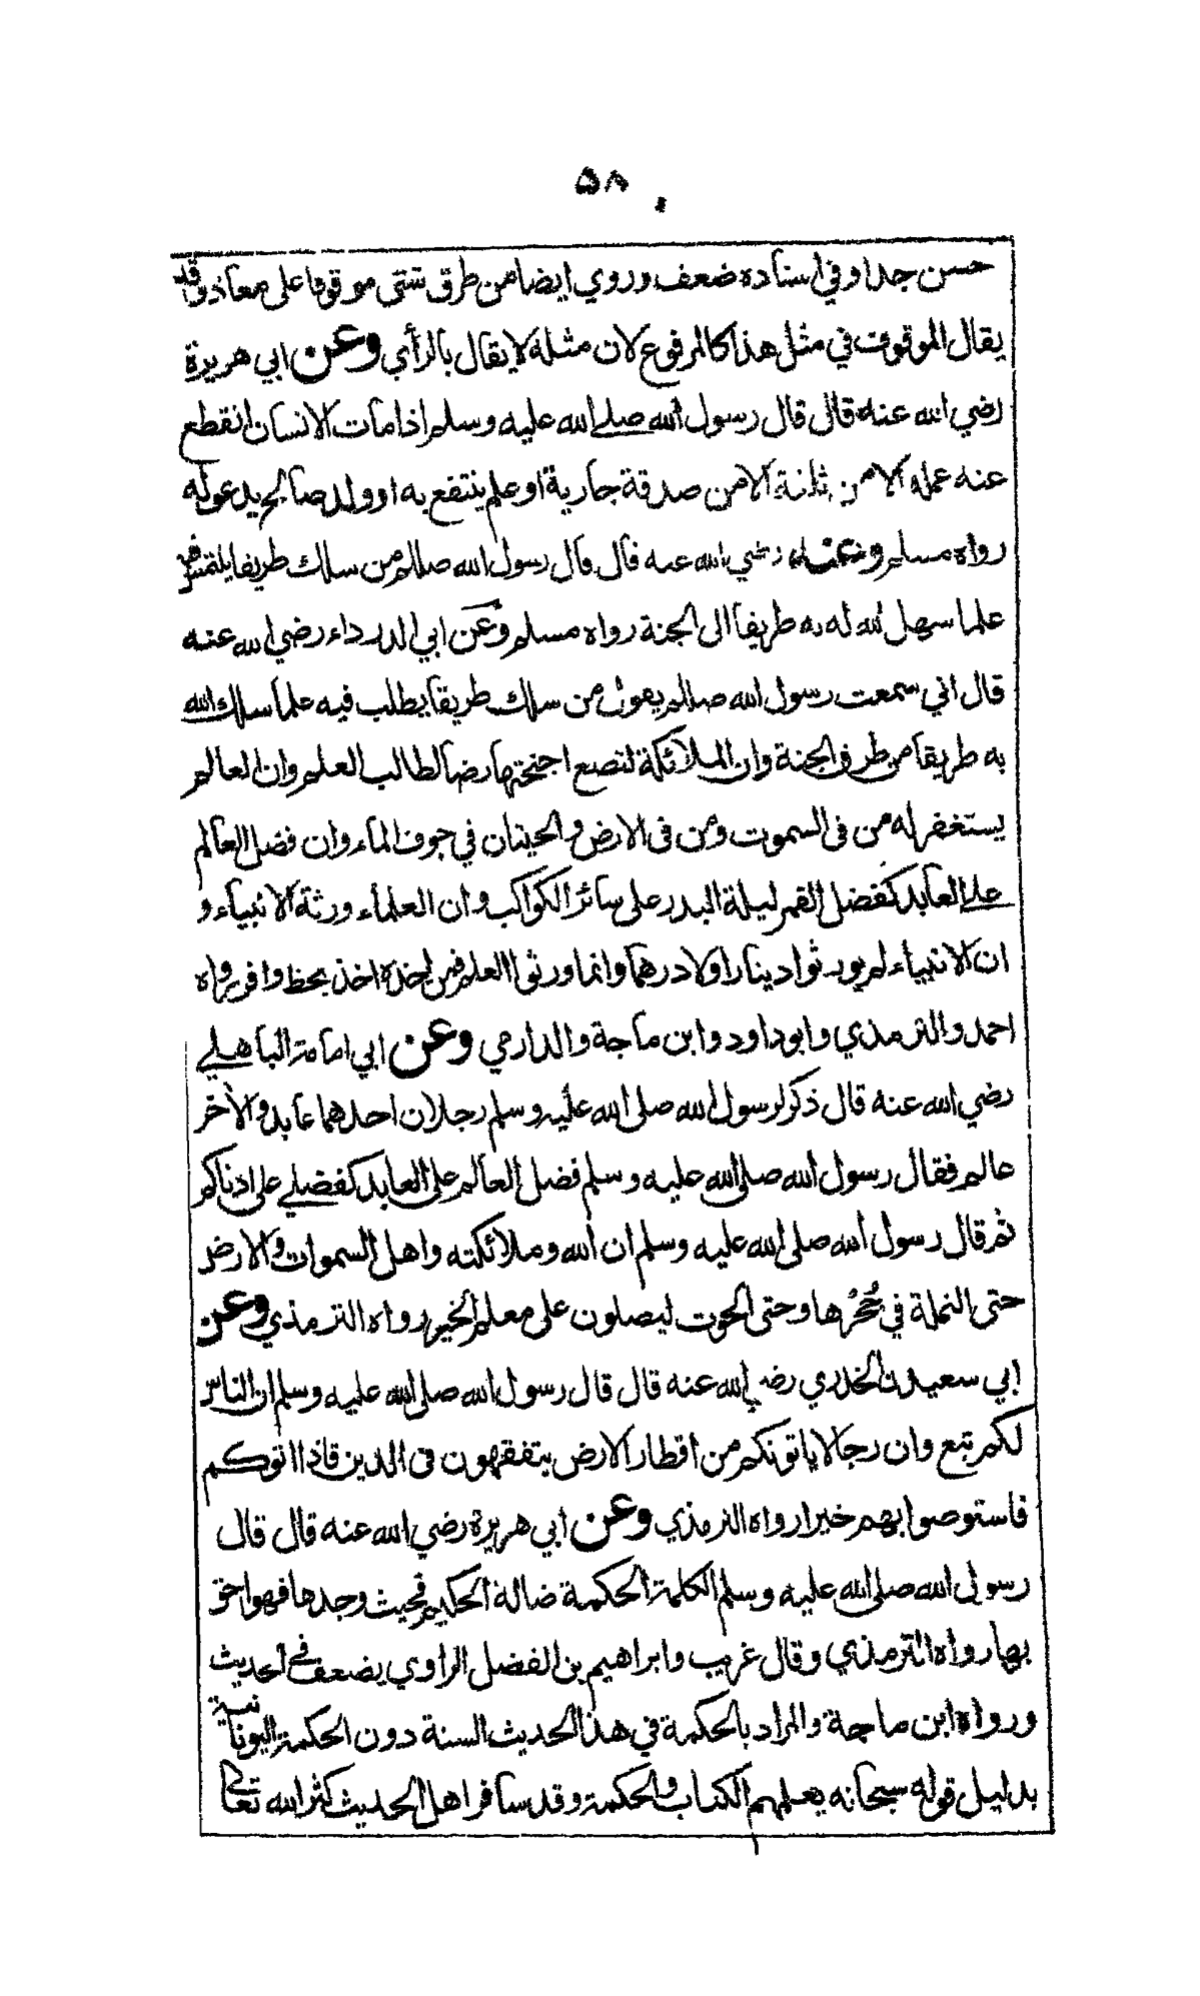 ٥٨
حسن جدا وفي اسناده ضعف وروي ايضا من طرق شتى موقوفا على معاذ وقد
يقال الموقوف في مثل هذا كالمرفوع لان مثله لا يقال بالرأي وعن ابي هريرة
رضي الله عنه قال قال رسول الله صلى الله عليه وسلم اذا مات الانسان انقطع
عنه عمله الا من ثلثة الا من صدقة جارية او علم ينتفع به او ولد صالح يدعو له
رواه مسلم وعنه رضي الله عنه قال قال رسول الله صللم من سلك طريقا يلتمس فيه
علما سهل الله له به طريقا الى الجنة رواه مسلم وعن ابي الدرداء رضي الله عنه
قال اني سمعت رسول الله صللم يقول من سلك طريقا يطلب فيه علما سلك الله
به طريقا من طرق الجنة وان الملائكة لتضع اجنحتها رضا لطالب العلم وان العالم
يستغفر له من في السموت ومن في الارض والحيتان في جوف الماء وان فضل العالم
على العابد كفضل القمر ليلة البدر على سائر الكواكب وان العلماء ورثة الانبياء و
ان الانبياء لم يورثوا دينارا ولا درهما وانما ورثوا العلم فمن اخذه اخذ بحظ وافر رواه
احمد والترمذي وابو داود وابن ماجة والدارمي وعن ابي امامة الباهلي
رضي الله عنه قال ذكر لرسول الله صلى الله عليه وسلم رجلان احدهما عابد والآخر
عالم فقال رسول الله صلى الله عليه وسلم فضل العالم على العابد كفضلي على ادناكم
ثم قال رسول الله صلى الله عليه وسلم ان الله وملائكته واهل السموات والارض
حتى النملة في جُحْرها وحتى الحوت ليصلون على معلم الخير رواه الترمذي وعن
ابي سعيد ن الخدري رضي الله عنه قال قال رسول الله صلى الله عليه وسلم ان الناس
لكم تبع وان رجالا ياتونكم من اقطار الارض يتفقهون في الدين فاذا اتوكم
فاستوصوا بهم خيرا رواه الترمذي وعن ابي هريرة رضي الله عنه قال قال
رسول الله صلى الله عليه وسلم الكلمة الحكمة ضالة الحكيم فحيث وجدها فهو احق
بها رواه الترمذي وقال غريب وابراهيم بن الفضل الراوي يضعف في الحديث
ورواه ابن ماجة والمراد بالحكمة في هذا الحديث السنة دون الحكمة اليونانية
بدليل قوله سبحانه يعلمهم الكتاب والحكمة وقد سافر اهل الحديث كثر الله تعالى